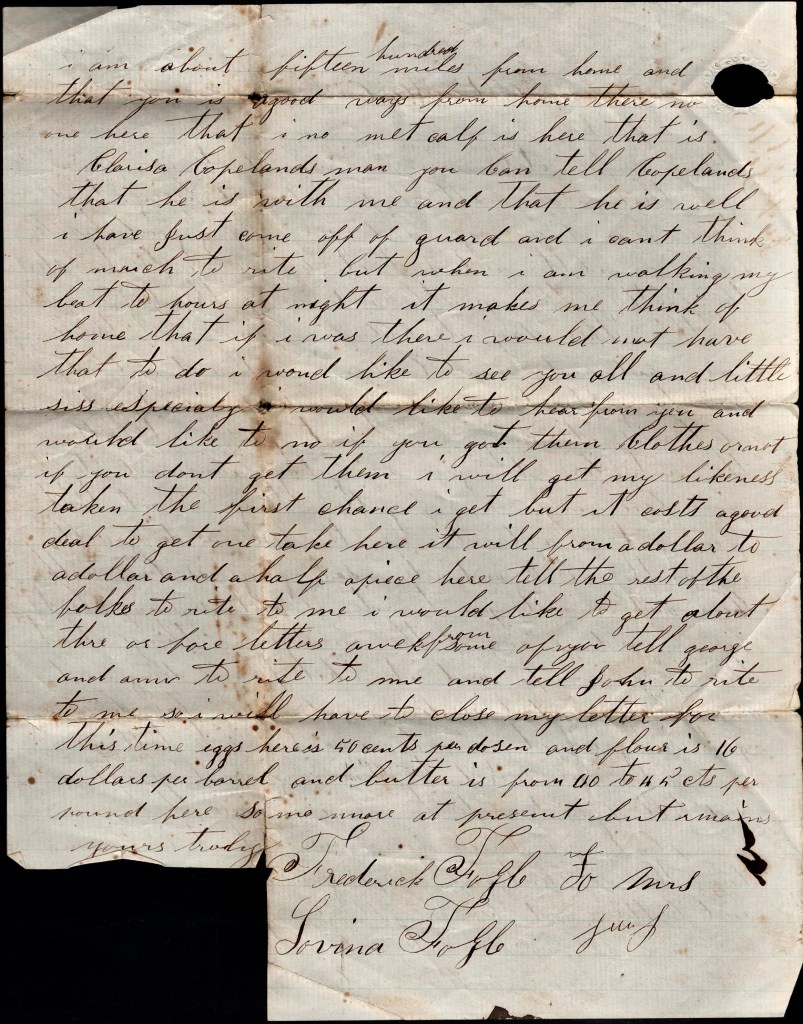 i am about fifteen hundred miles from home and
that you is agood ways from home there no
one here that i no met calf is here that is
Clarisa Copelands man you Can tell Copelands
that he is with me and that he is well
i have Just come off of guard and i cant think
of march to rite but when i am walking my
beat to hours at night it makes me think of
home that if i was there i would not have
that to do i woud like to see you all and little
siss especialy i would like to hear from you and
would like to no if you got them Clothes or not
if you dont get them i will get my likeness
taken the first chance i get but it costs agood
deal to get one take here it will from adollar to
adollar and ahalf apiece here tell the rest of the
folkes to rite to me i would like to get about
thre or fore letters aweek from some of you tell george
and ann to rite to me and tell John to rite
to me so i will have to close my letter for
this time eggs here is 50 cents per dosen and flour is 16
dollars per barrel and butter is from 40 to 45 cts per
pound here so no more at present but remains
yours truly
Frederick Fogle To Mrs
Lovina Fogle